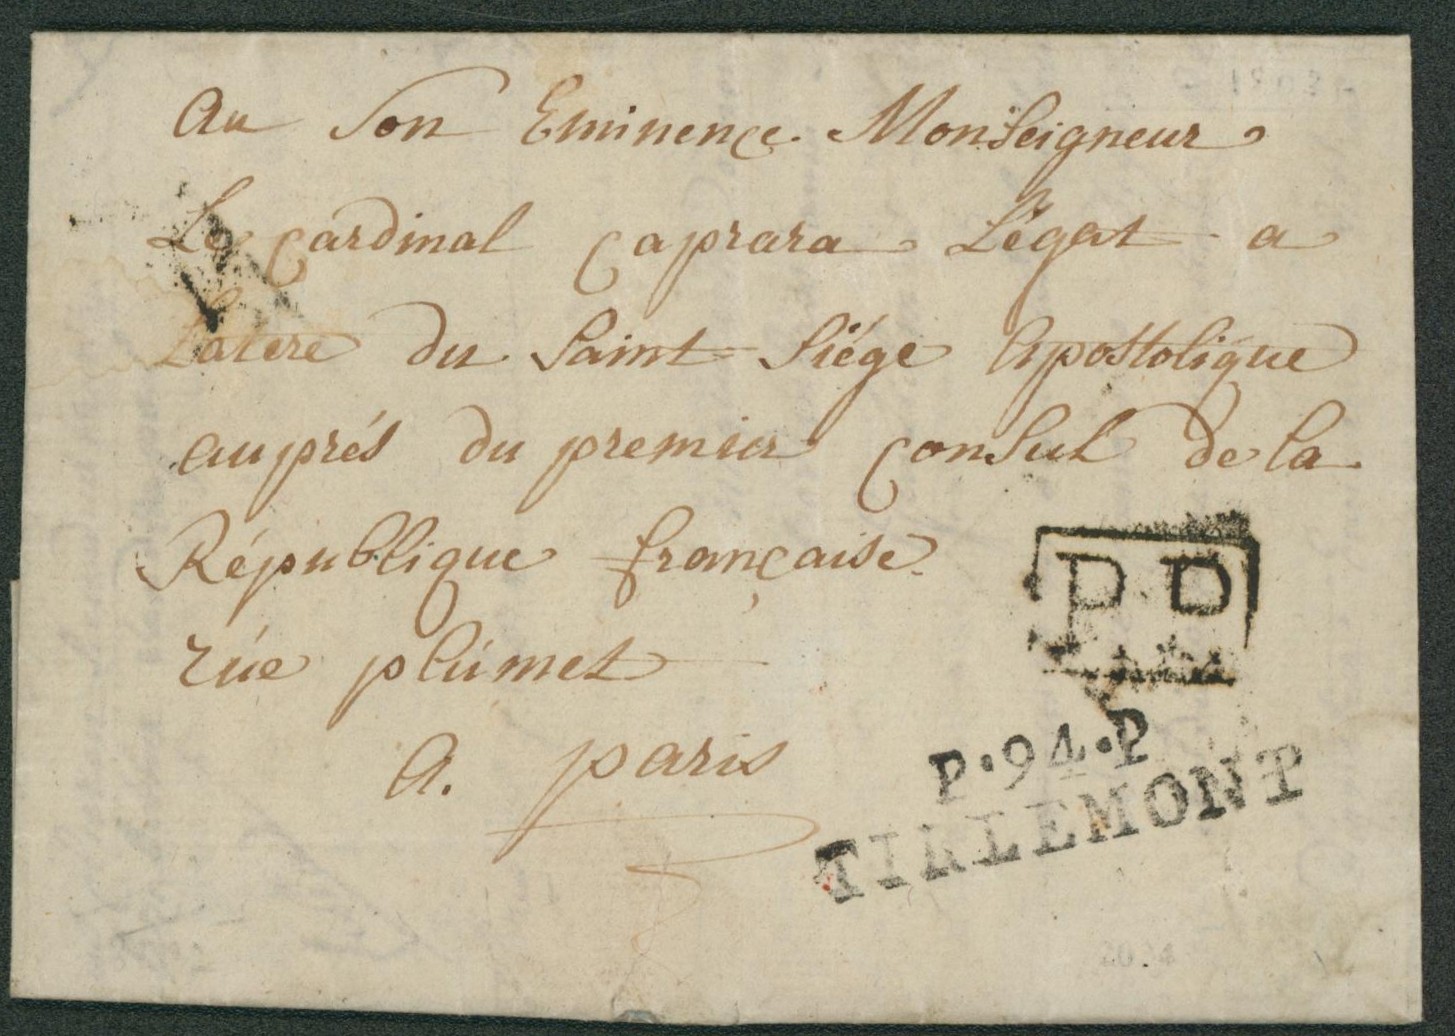 Au Son Eminence Monseigneur
Le Cardinal Caprara Légat a
Latere du Saint Siége Apostolique
auprés du premier Consul de la
République française
rúe plúmet
A. paris
P P
P.94.P
TIRLEMONT